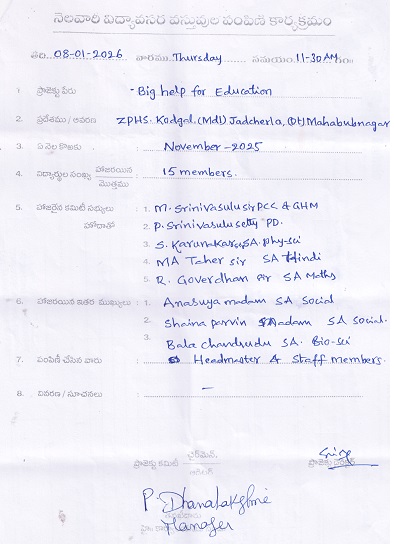 నెలవారి విద్యావసర వస్తువుల పంపిణి కార్యక్రమం
తేది. 08-01-2026 వారము Thursday సమయం 11-30 AM గం॥
1. ప్రాజెక్టు పేరు - Big help for Education
2. ప్రదేశము / ఆవరణ ZPHS. Kodgal. (Mdl) Jadcherla, (Dt) Mahabubnagar
3. ఏ నెల కొరకు November - 2025
4. విద్యార్థుల సంఖ్య హాజరయిన / మొత్తము 15 members.
5. హాజరైన కమిటీ సభ్యులు 1. M. Srinivasulu sir PCC & GHM
హోదాతో 2. P. Srinivasulu setty PD.
3. S. Karunakar SA. phy-sci
4. MA Taher sir SA Hindi
5. R. Goverdhan sir SA Maths
6. హాజరయిన ఇతర ముఖ్యులు 1. Anasuya madam SA Social
2. Shaina parvin Madam SA Social.
3. Bala chandrudu SA. Bio-sci
7. పంపిణీ చేసిన వారు Headmaster & Staff members.
8. వివరణ / సూచనలు —
ప్రాజెక్టు కమిటీ చైర్‌మెన్.
P. Dhanalakshmi
Manager